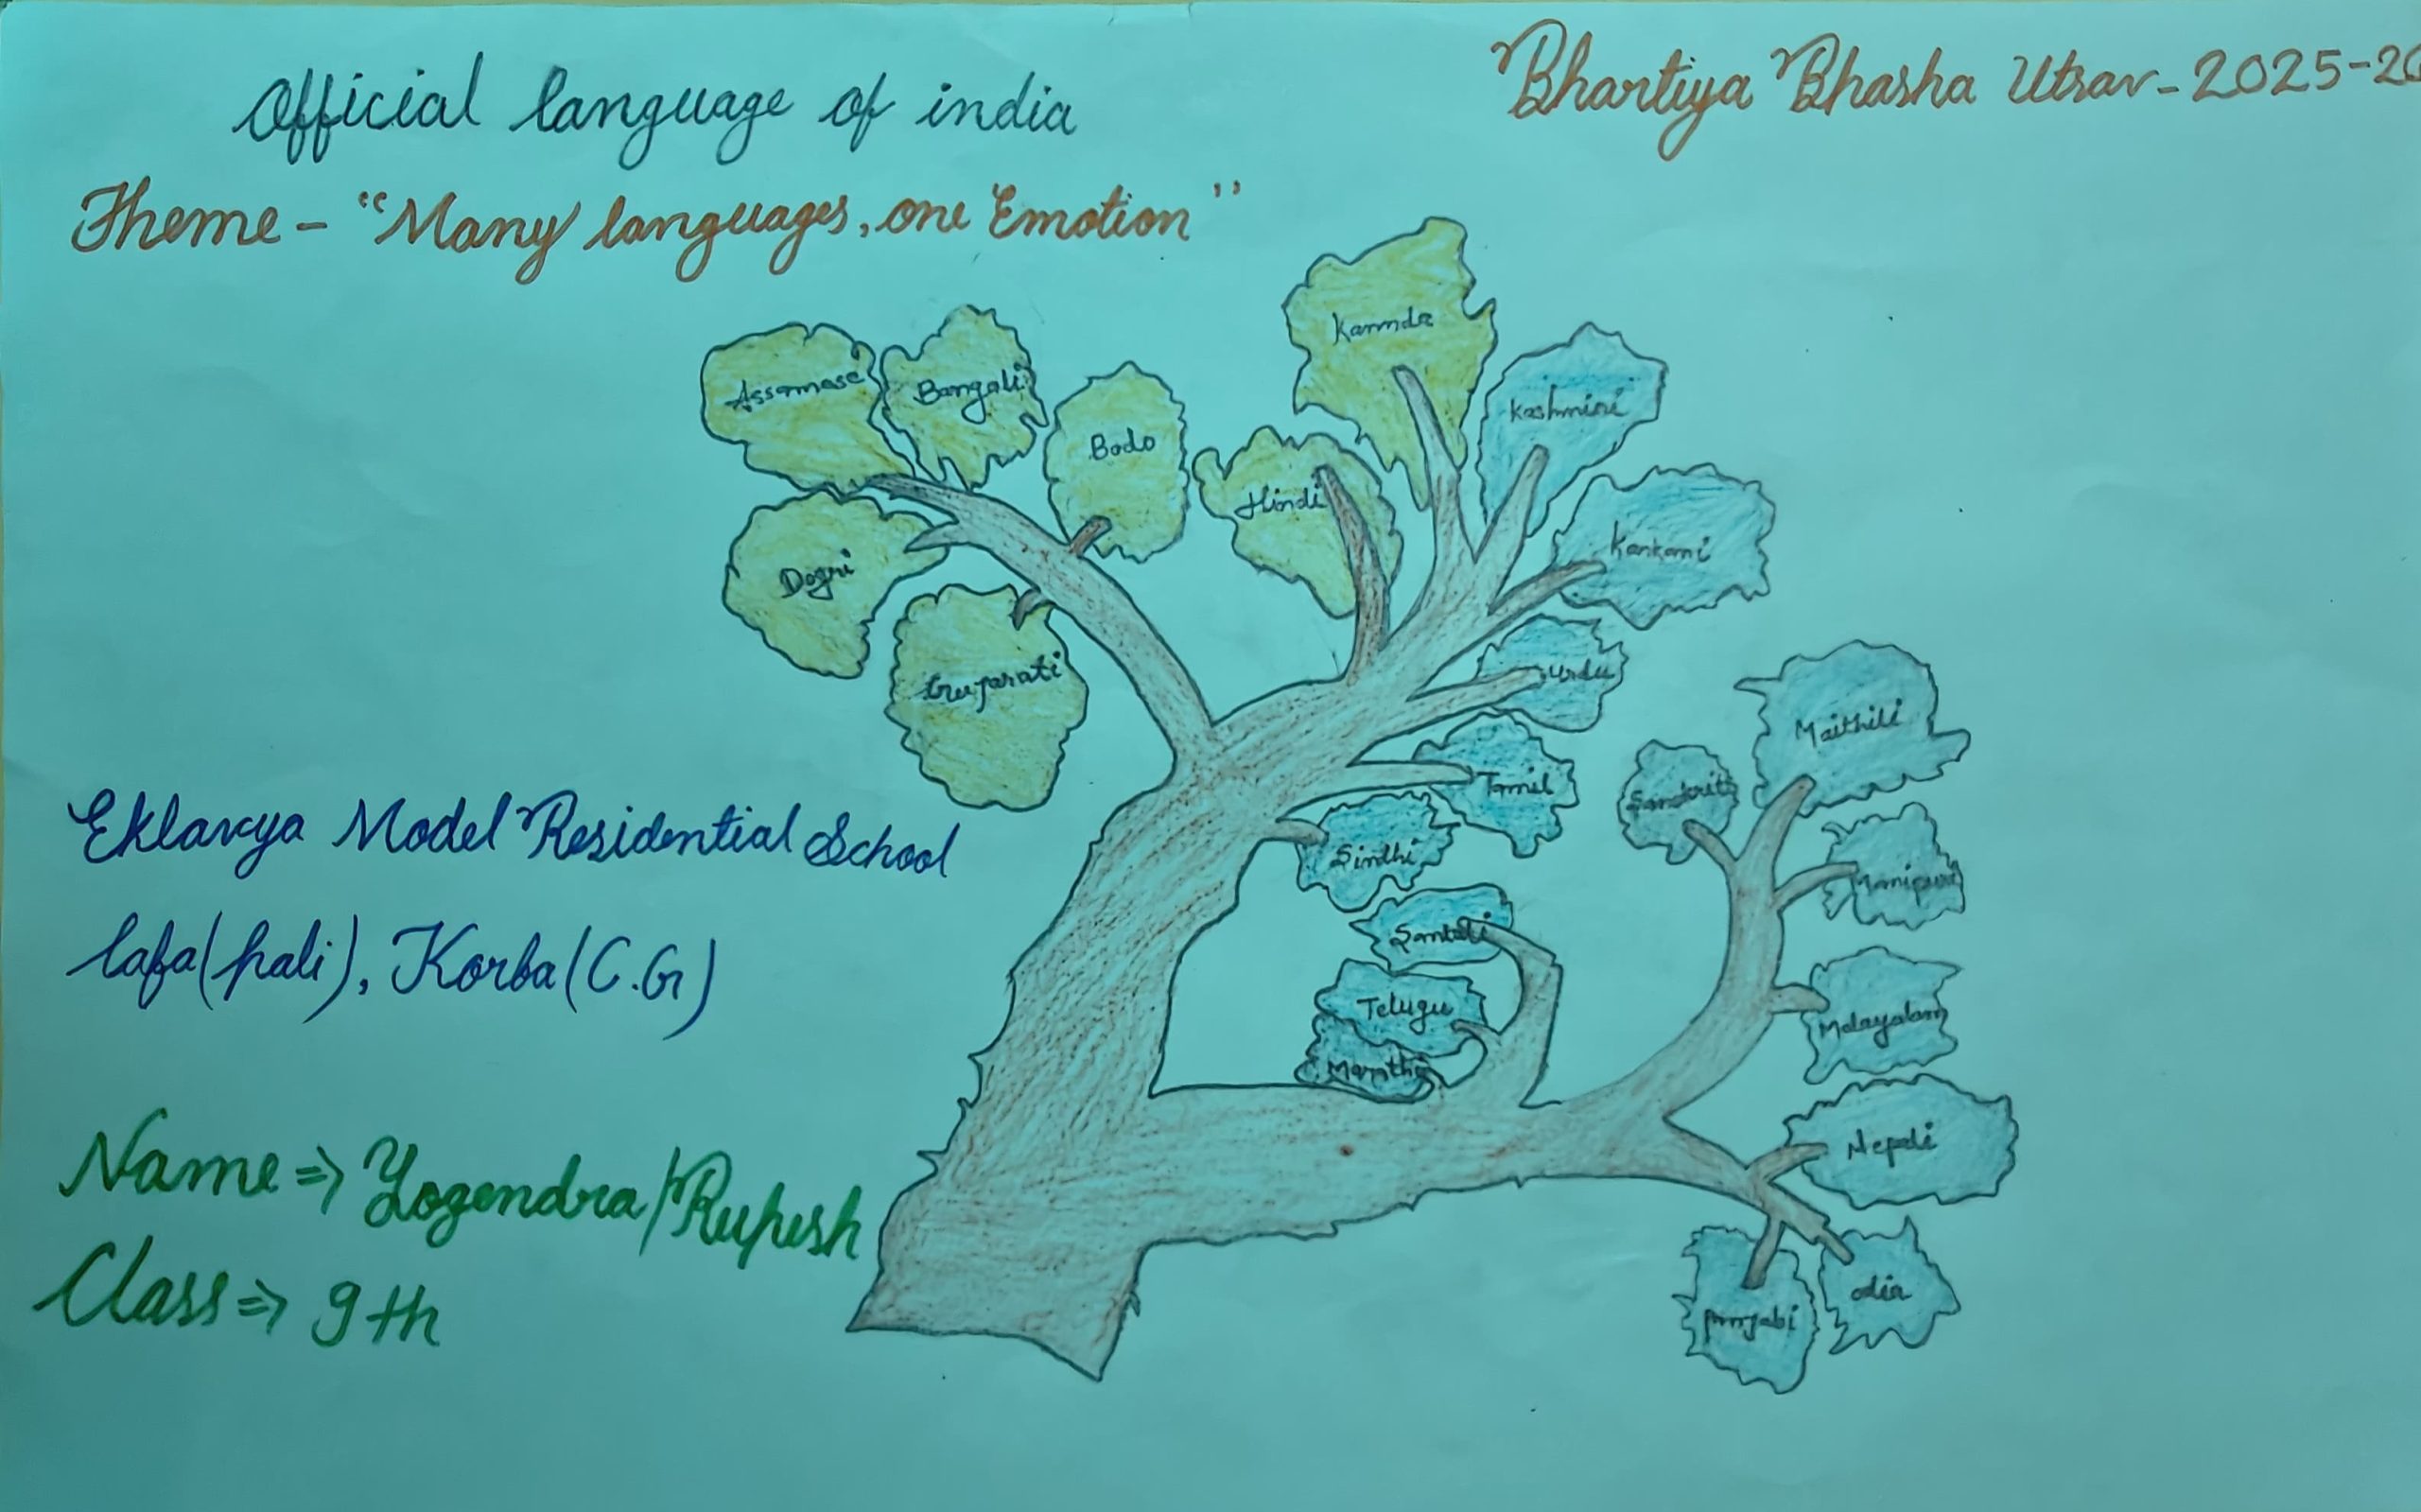 Official language of india
Bhartiya Bhasha Utsav - 2025-26
Theme - "Many languages, one Emotion"
Kannda
Assamase
Bangali
Bodo
Kashmiri
Hindi
Kankani
Dogri
Gujarati
Urdu
Maithili
Tamil
Sanskrit
Sindhi
Manipuri
Eklavya Model Residential School
Santali
lafa(pali), Korba(C.G)
Telugu
Malayalam
Marathi
Nepali
Name => Yogendra/Rupesh
Class => 9th
Punjabi
odia